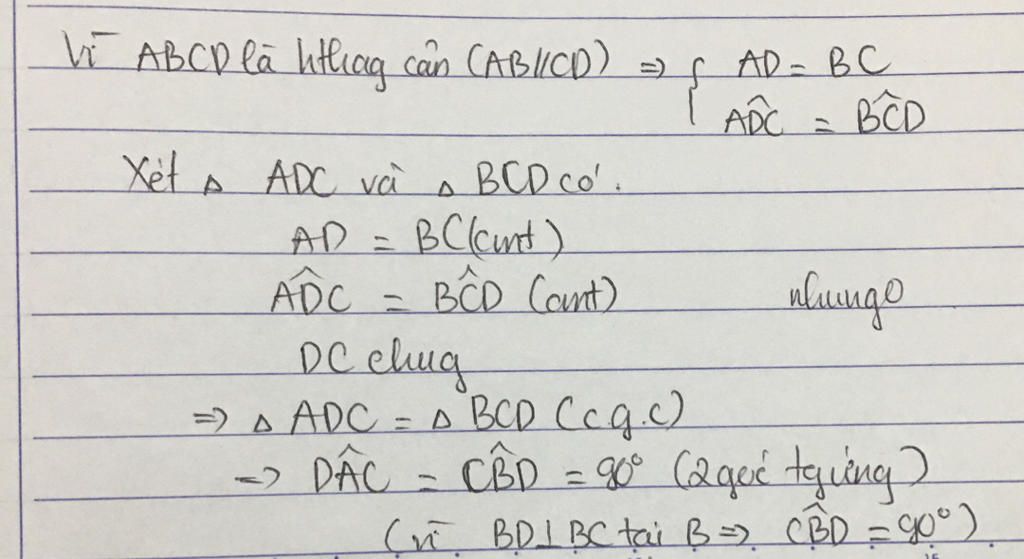 Vì ABCD là hthag cân (AB//CD) => { AD = BC
ADC^ = BCD^
Xét △ ADC và △ BCD có:
AD = BC (cmt)
ADC^ = BCD^ (cmt)
DC chug
=> △ ADC = △ BCD (c.g.c)
=> DAC^ = CBD^ = 90° (2 góc tg ứng)
(vì BD⊥BC tại B => CBD^ = 90°)